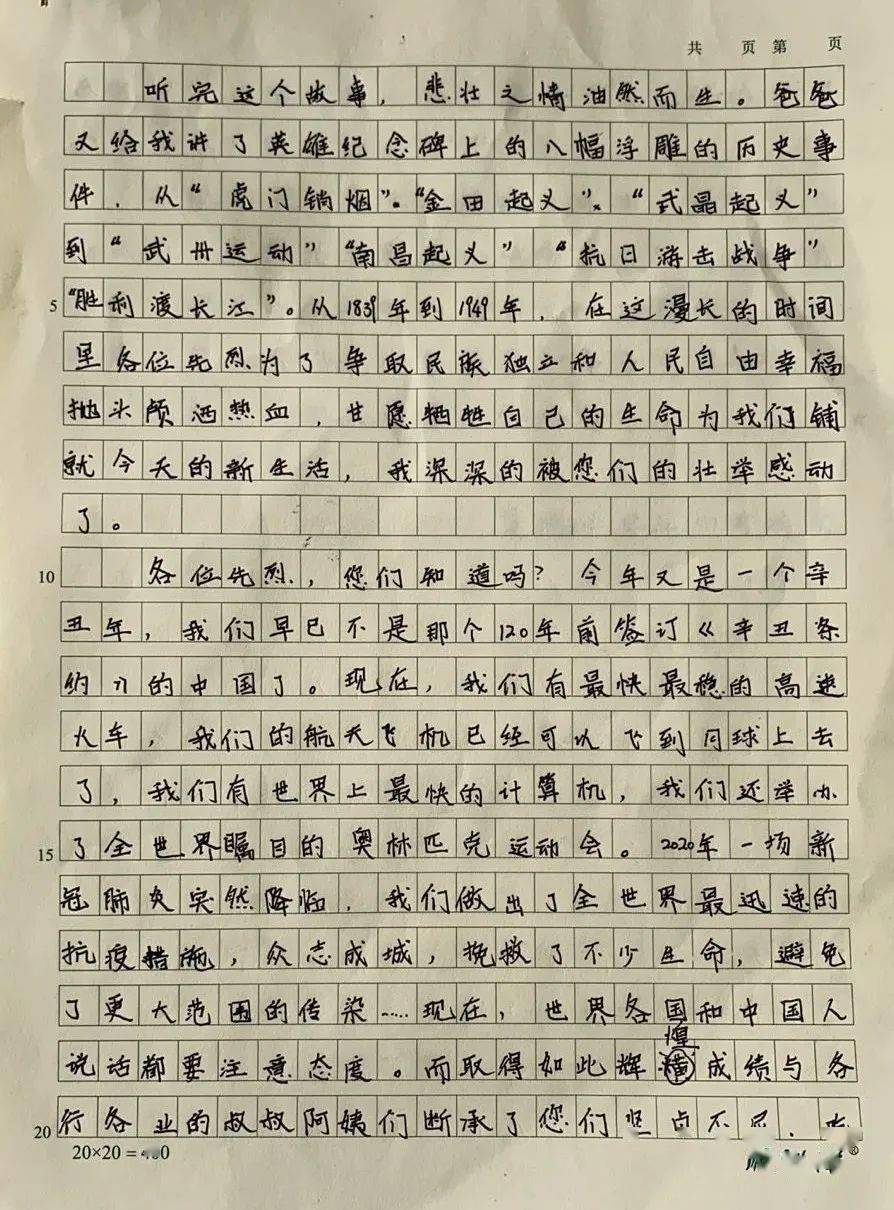 共 页 第 页
听完这个故事，悲壮之情油然而生。爸爸
又给我讲了英雄纪念碑上的八幅浮雕的历史事
件，从“虎门销烟”、“金田起义”、“武昌起义”
到“武卅运动”“南昌起义”“抗日游击战争”
5 “胜利渡长江”。从1839年到1949年，在这漫长的时间
里各位先烈为了争取民族独立和人民自由幸福
抛头颅洒热血，甘愿牺牲自己的生命为我们铺
就今天的新生活，我深深的被您们的壮举感动
了。
10 各位先烈，您们知道吗？今年又是一个辛
丑年，我们早已不是那个120年前签订《辛丑条
约》的中国了。现在，我们有最快最稳的高速
火车，我们的航天飞机已经可以飞到月球上去
了，我们有世界上最快的计算机，我们还举办
15 了全世界瞩目的奥林匹克运动会。2020年一场新
冠肺炎突然降临，我们做出了全世界最迅速的
抗疫措施，众志成城，挽救了不少生命，避免
了更大范围的传染……现在，世界各国和中国人
说话都要注意态度。而取得如此辉煌成绩与各
20 行各业的叔叔阿姨们断承了您们
20×20=400